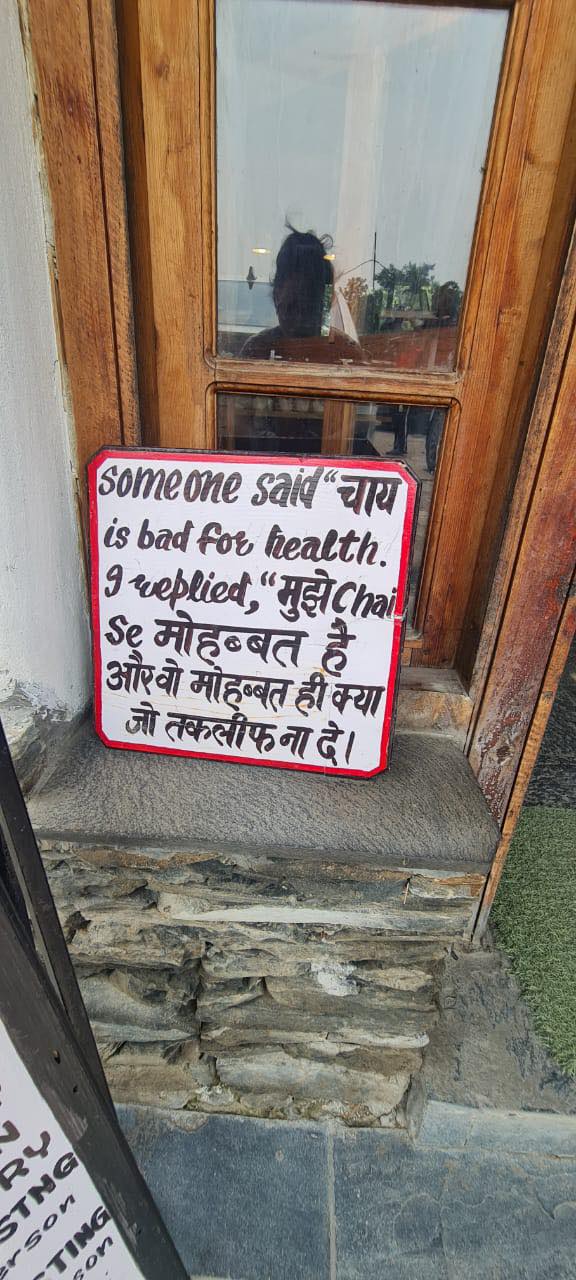 someone said "चाय
is bad for health.
I replied, "मुझे Chai
se मोहब्बत है
और वो मोहब्बत ही क्या
जो तकलीफ ना दे।
RY
STNG
erson
TING
son